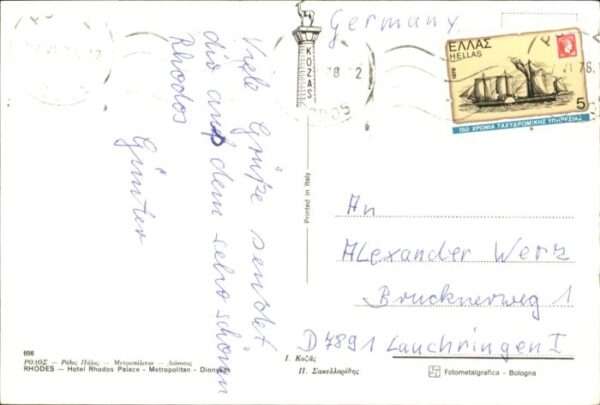 Viele Grüße sendet
dir aus dem sehr schönen
Rhodos
Günter
Germany
KOZAS
ΕΛΛΑΣ
HELLAS
5
150 ΧΡΟΝΙΑ ΤΑΧΥΔΡΟΜΙΚΗΣ ΥΠΗΡΕΣΙΑΣ
78
Printed in Italy
An
Alexander Werz
Brucknerweg 1
D 7891 Lauchringen I
698
ΡΟΔΟΣ — Ρόδος Πάλας — Μετροπόλιταν — Διόνυσος
RHODES — Hotel Rhodos Palace - Metropolitan - Dionysos
Ι. Κοζᾶς
Π. Σακελλαρίδης
Fotometalgrafica - Bologna